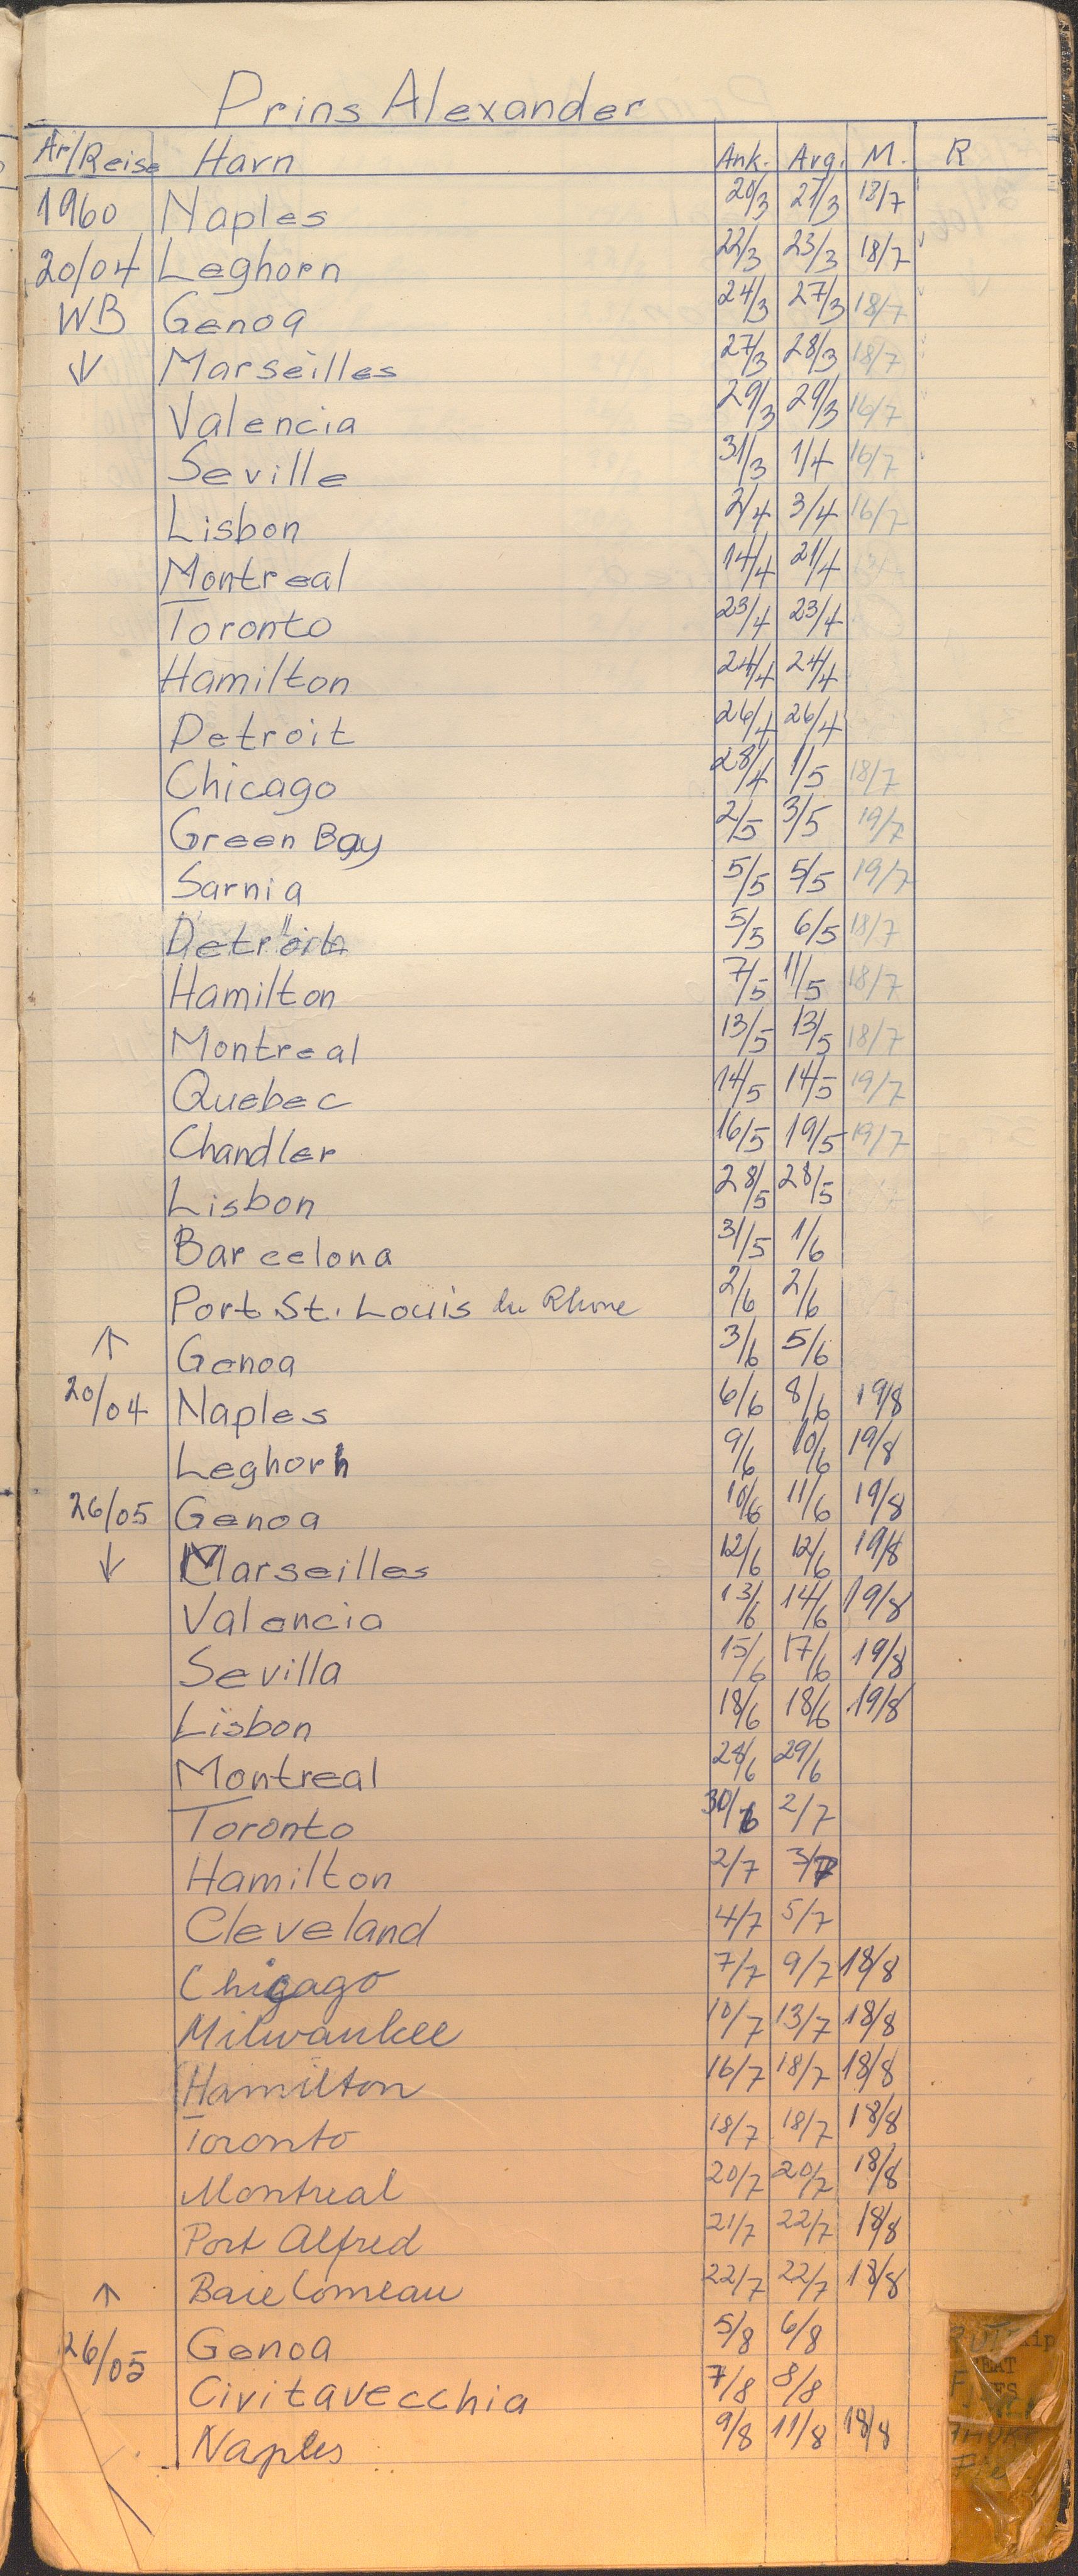 Prins Alexander
År/Reise Havn Ank. Avg. M. R
1960 Naples 20/3 21/3 18/7
20/04 Leghorn 22/3 23/3 18/7
WB Genoa 24/3 27/3 18/7
↓ Marseilles 27/3 28/3 18/7
Valencia 29/3 29/3 16/7
Seville 31/3 1/4 16/7
Lisbon 2/4 3/4 16/7
Montreal 14/4 21/4
Toronto 23/4 23/4
Hamilton 24/4 24/4
Detroit 26/4 26/4
Chicago 28/4 1/5 18/7
Green Bay 2/5 3/5 19/7
Sarnia 5/5 5/5 19/7
Detroit 5/5 6/5 18/7
Hamilton 7/5 11/5 18/7
Montreal 13/5 13/5 18/7
Quebec 14/5 14/5 19/7
Chandler 16/5 19/5 19/7
Lisbon 28/5 28/5
Barcelona 31/5 1/6
Port St. Louis du Rhone 2/6 2/6
↑ Genoa 3/6 5/6
20/04 Naples 6/6 8/6 19/8
Leghorn 9/6 10/6 19/8
26/05 Genoa 10/6 11/6 19/8
↓ Marseilles 12/6 12/6 19/8
Valencia 13/6 14/6 19/8
Sevilla 15/6 17/6 19/8
Lisbon 18/6 18/6 19/8
Montreal 28/6 29/6
Toronto 30/6 2/7
Hamilton 2/7 3/7
Cleveland 4/7 5/7
Chicago 7/7 9/7 18/8
Milwaukee 10/7 13/7 18/8
Hamilton 16/7 18/7 18/8
Toronto 18/7 18/7 18/8
Montreal 20/7 20/7 18/8
Port Alfred 21/7 22/7 18/8
↑ Baie Comeau 22/7 22/7 18/8
26/05 Genoa 5/8 6/8
Civitavecchia 7/8 8/8
Naples 9/8 11/8 18/8